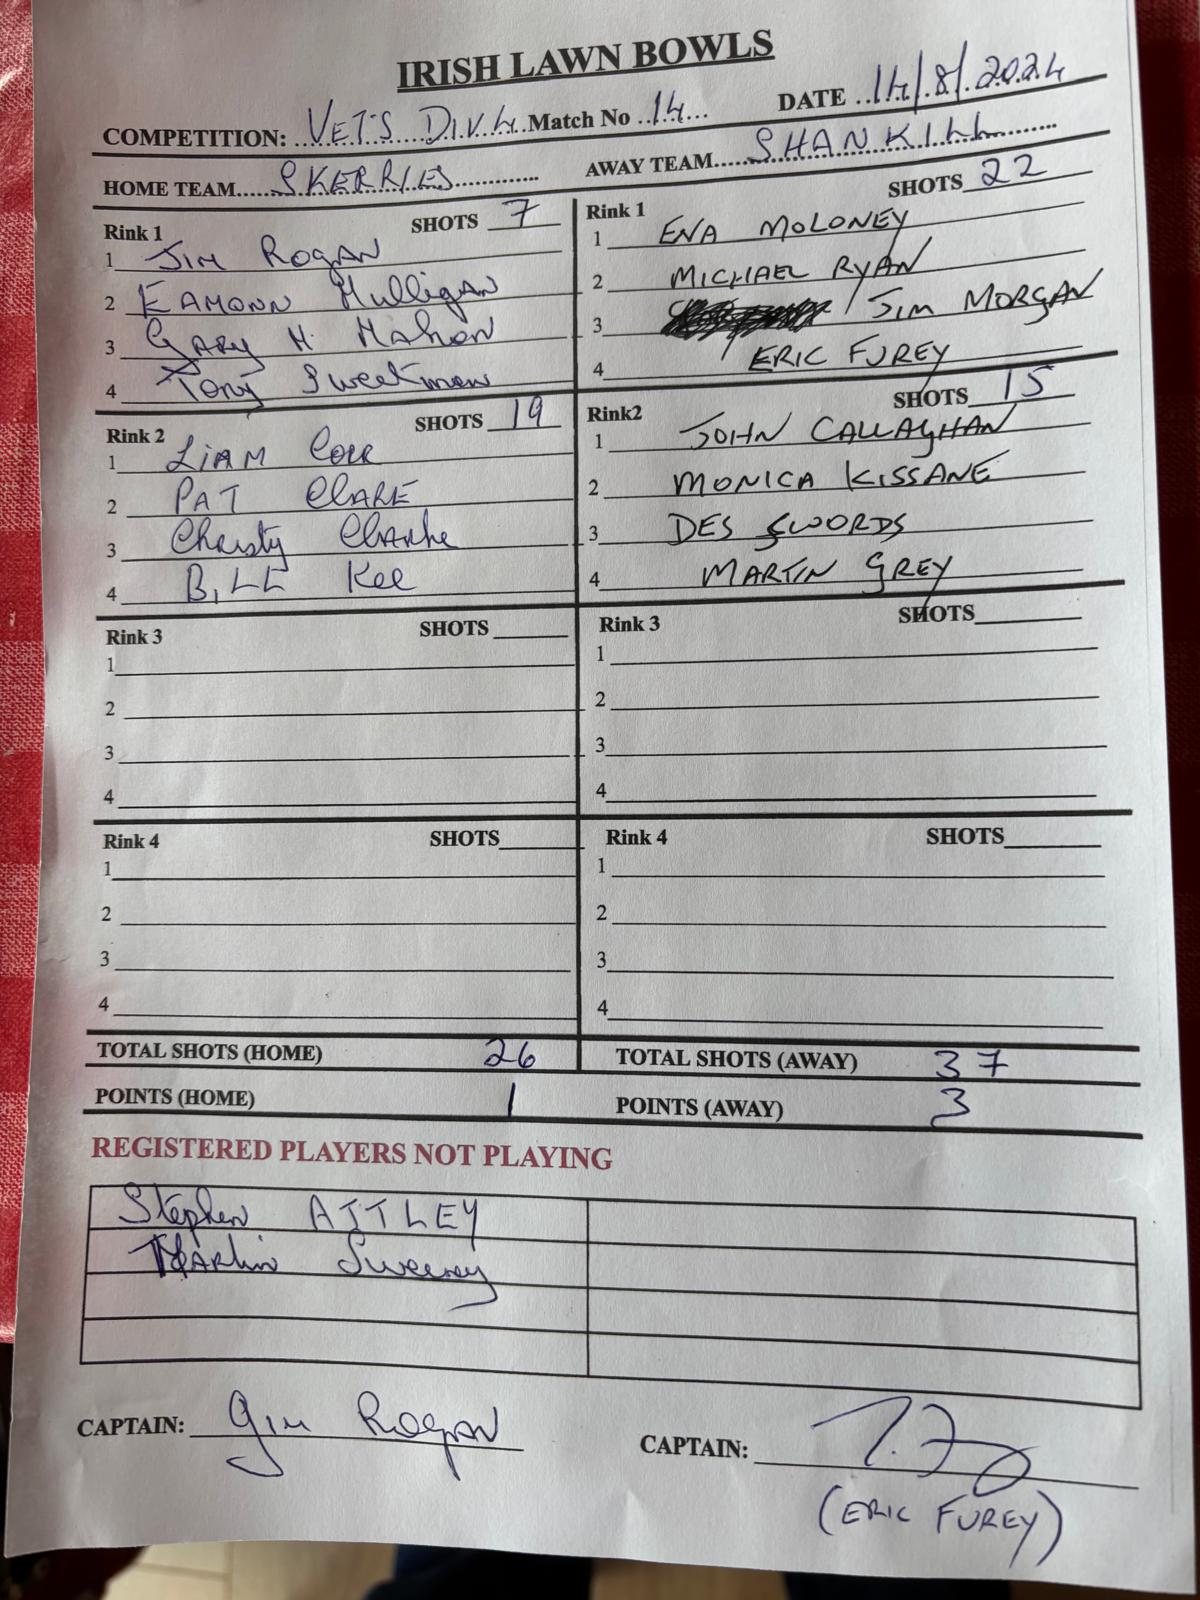 IRISH LAWN BOWLS
COMPETITION: VETS DIV.4. Match No 14 DATE 14/8/2024
HOME TEAM SKERRIES AWAY TEAM SHANKILL
Rink 1 SHOTS 7
1 Jim Rogan
2 EAMONN Mulligan
3 GARY Mc Mahon
4 Tony Sweetman
Rink 1 SHOTS 22
1 ENA MOLONEY
2 MICHAEL RYAN
3 JIM MORGAN
4 ERIC FUREY
Rink 2 SHOTS 19
1 LIAM Corr
2 PAT CLARE
3 Christy Clarke
4 BILL Kee
Rink2 SHOTS 15
1 JOHN CALLAGHAN
2 MONICA KISSANE
3 DES SWORDS
4 MARTIN GREY
Rink 3 SHOTS
1
2
3
4
Rink 3 SHOTS
1
2
3
4
Rink 4 SHOTS
1
2
3
4
Rink 4 SHOTS
1
2
3
4
TOTAL SHOTS (HOME) 26 TOTAL SHOTS (AWAY) 37
POINTS (HOME) 1 POINTS (AWAY) 3
REGISTERED PLAYERS NOT PLAYING
Stephen ATTLEY
Martin Sweeney
CAPTAIN: Jim Rogan
CAPTAIN:
(ERIC FUREY)